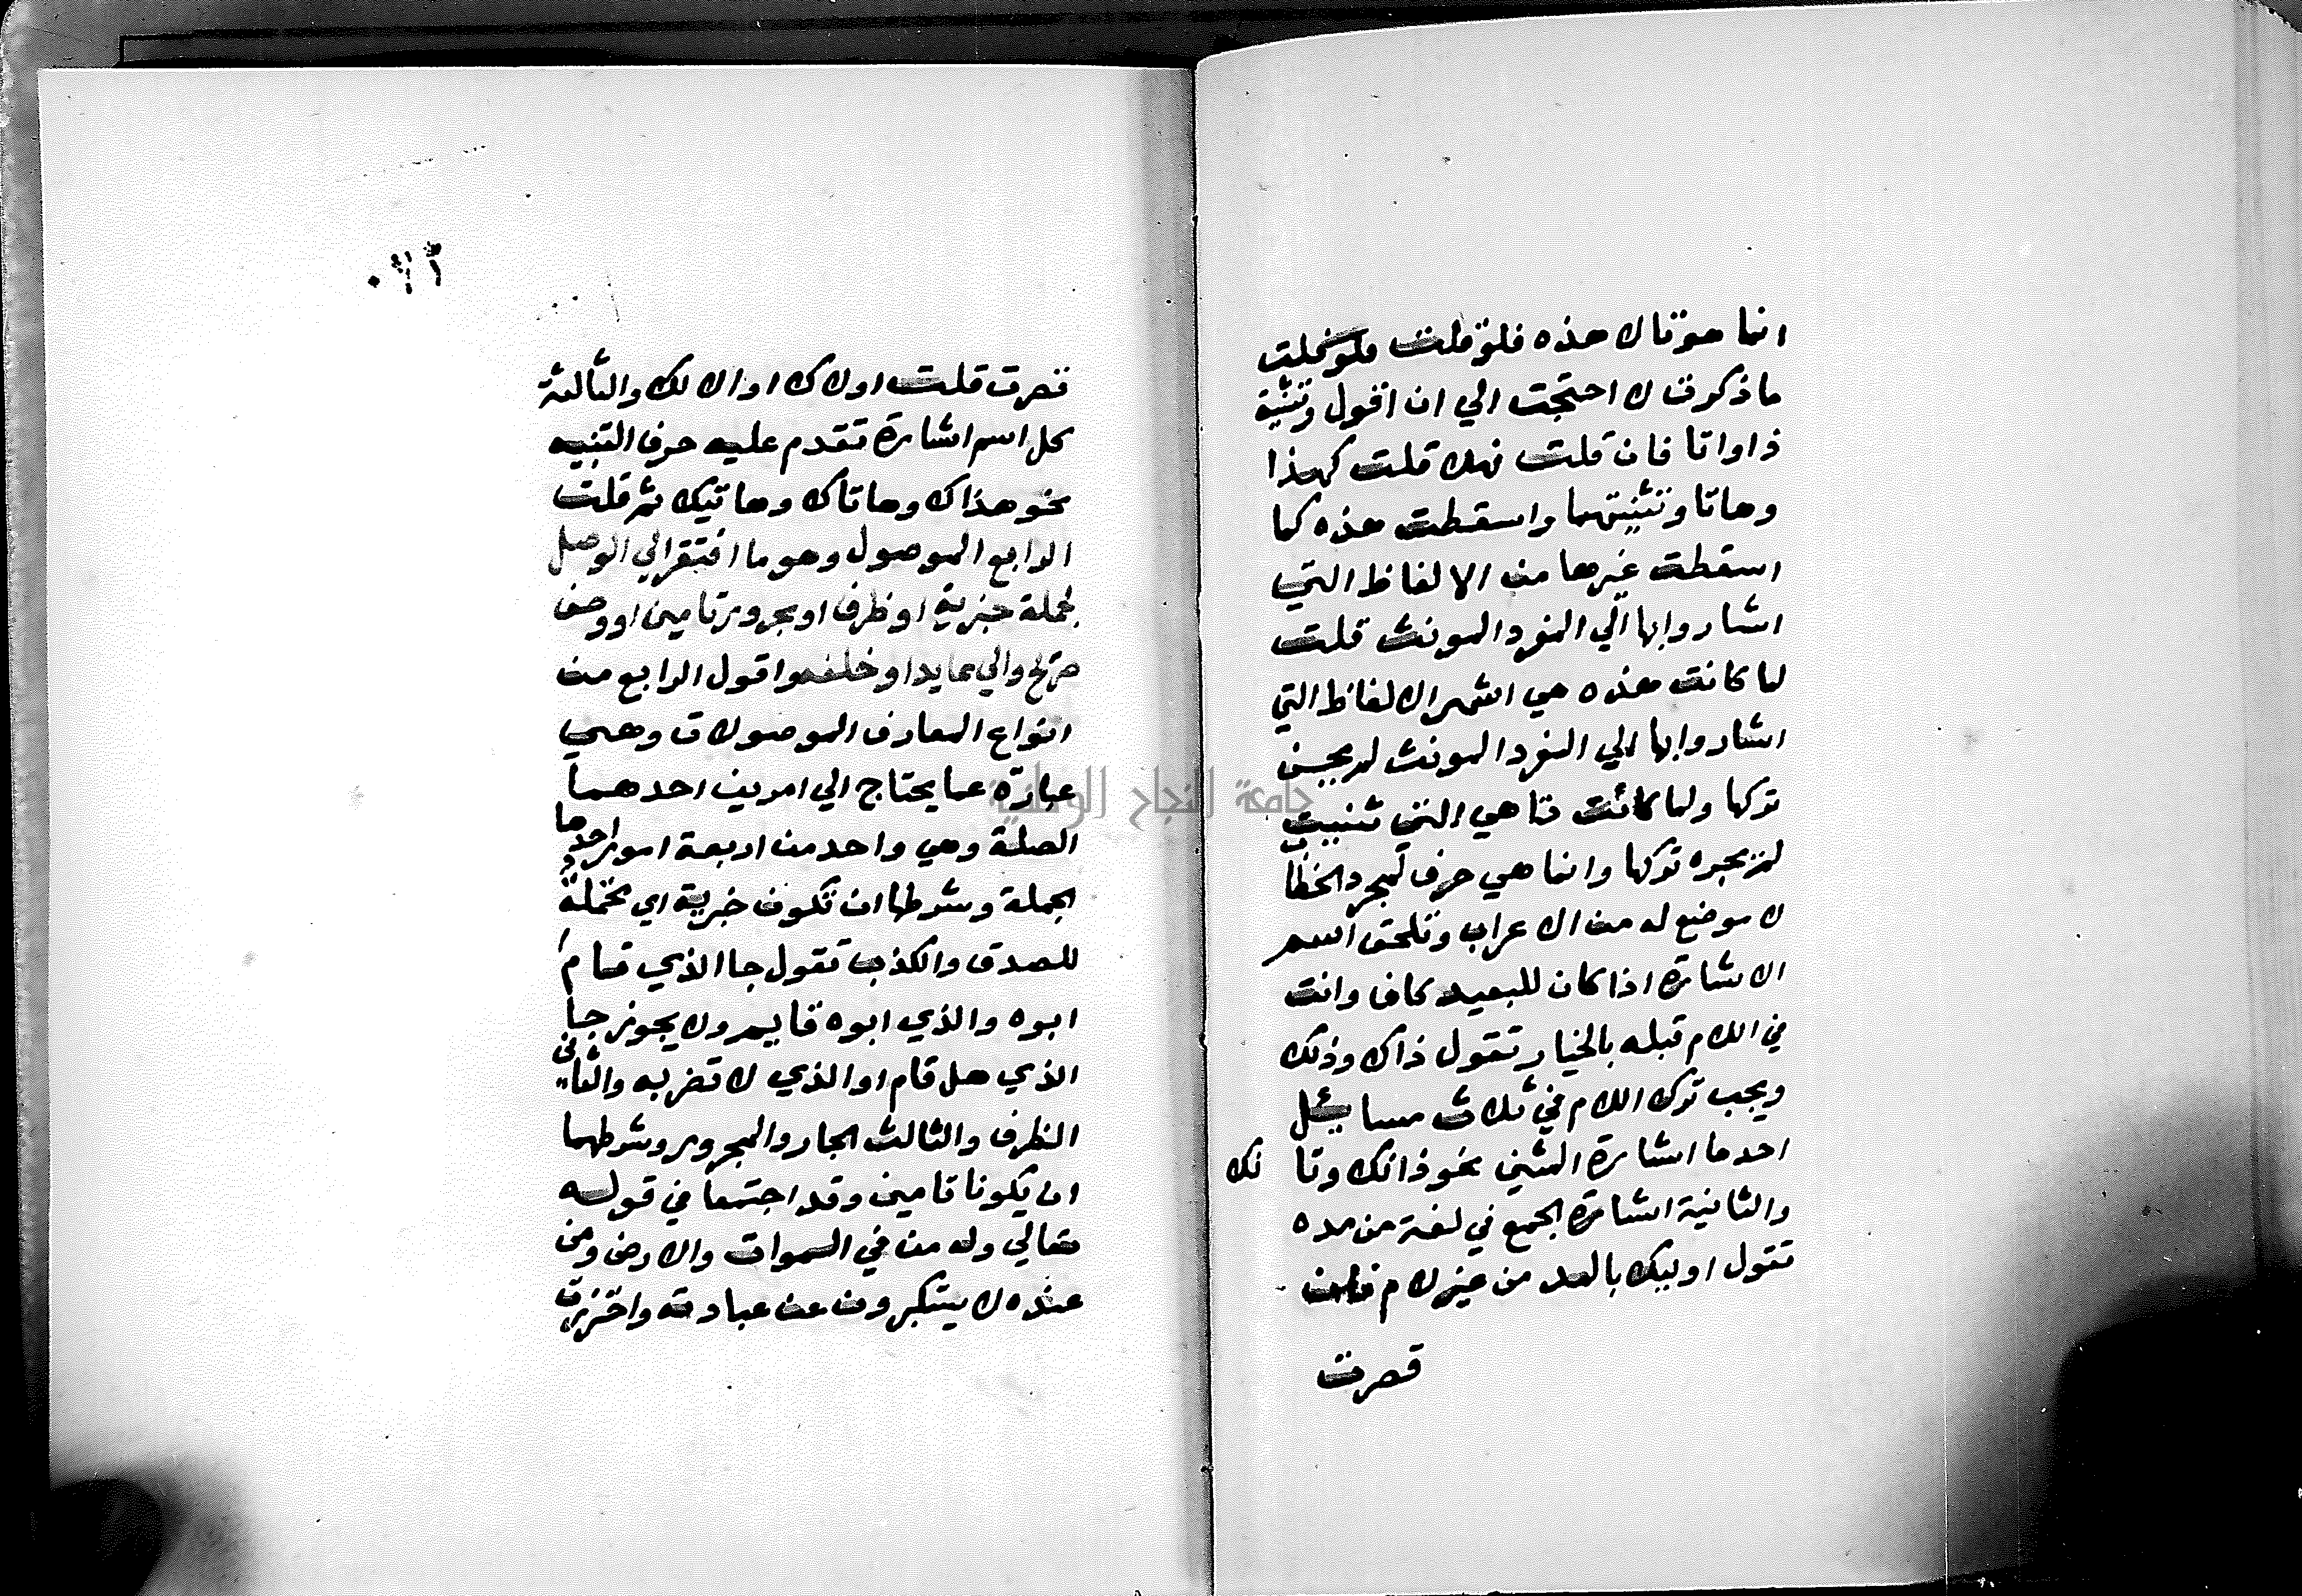 انما هو تا لا هذه فلو قلت ولو قلت
ما ذكرت لاحتجت الي ان اقول وتثنية
ذا وتا فان قلت فهلا قلت كهذا
وهاتا وتثنيتهما واسقطت هذه كما
اسقطت غيرها من الالفاظ التي
اشاروا بها الي المفرد المونث قلت
لما كانت هذه هي اشهر الالفاظ التي
اشاروا بها الي المفرد المونث لم يحسن
تركها ولما كانت تا هي التي تثنيت
لم يجز تركها وانما هي حرف لمجرد الخطاب
لا موضع له من الاعراب وتلحق اسم
الاشارة اذا كان للبعيد كاف وانت
في اللام قبله بالخيار تقول ذاك وذلك
ويجب ترك اللام في ثلاث مسايل
احدها اشارة المثني نحو ذانك وتا نك
والثانية اشارة الجمع في لغة من مده
تقول اوليك بالمد من غير لام فان
قصرت
قصرت قلت اولاك او الالك والثالثة
كل اسم اشارة تقدم عليه حرف التنبيه
نحو هذاك وهاتاك وهاتيك ثم قلت
الرابع الموصول وهو ما افتقر الي الوصل
بجملة خبرية او ظرف او مجرور تامين او وصف
صريح والي عايد او خلفه واقول الرابع من
انواع المعارف الموصولات وهي
عبارة عما يحتاج الي امرين احدهما
الصلة وهي واحد من اربعة امور احدها
الجملة وشرطها ان تكون خبرية اي محتملة
للصدق والكذب تقول جا الذي قام
ابوه والذي ابوه قايم ولا يجوز جا
الذي هل قام او الذي لا تضربه والثاني
الظرف والثالث الجار والمجرور وشرطهما
ان يكونا تامين وقد اجتمعا في قوله
تعالي وله من في السموات والارض ومن
عنده لا يستكبرون عن عبادته واحترزت
جامعة النجاح الوطنية